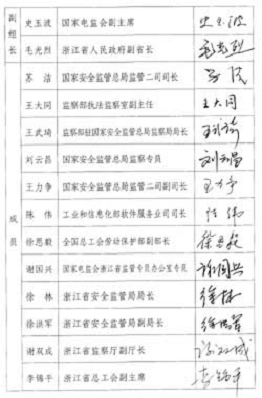 副组长
史玉波 国家电监会副主席 史玉波
毛光烈 浙江省人民政府副省长 毛光烈
苏洁 国家安全监管总局监管二司司长 苏洁
王大同 监察部执法监察室副主任 王大同
王武琦 监察部驻国家安全监管总局监察局局长 王武琦
刘云昌 国家安全监管总局监察专员 刘云昌
王力争 国家安全监管总局监管二司副司长 王力争
成员
陈伟 工业和信息化部软件服务业司司长 陈伟
徐恩毅 全国总工会劳动保护部副部长 徐恩毅
谢国兴 国家电监会浙江省监管专员办公室专员 谢国兴
徐林 浙江省安全监管局局长 徐林
徐洪军 浙江省安全监管局副局长 徐洪军
谢双成 浙江省监察厅副厅长 谢双成
李锡平 浙江省总工会副主席 李锡平